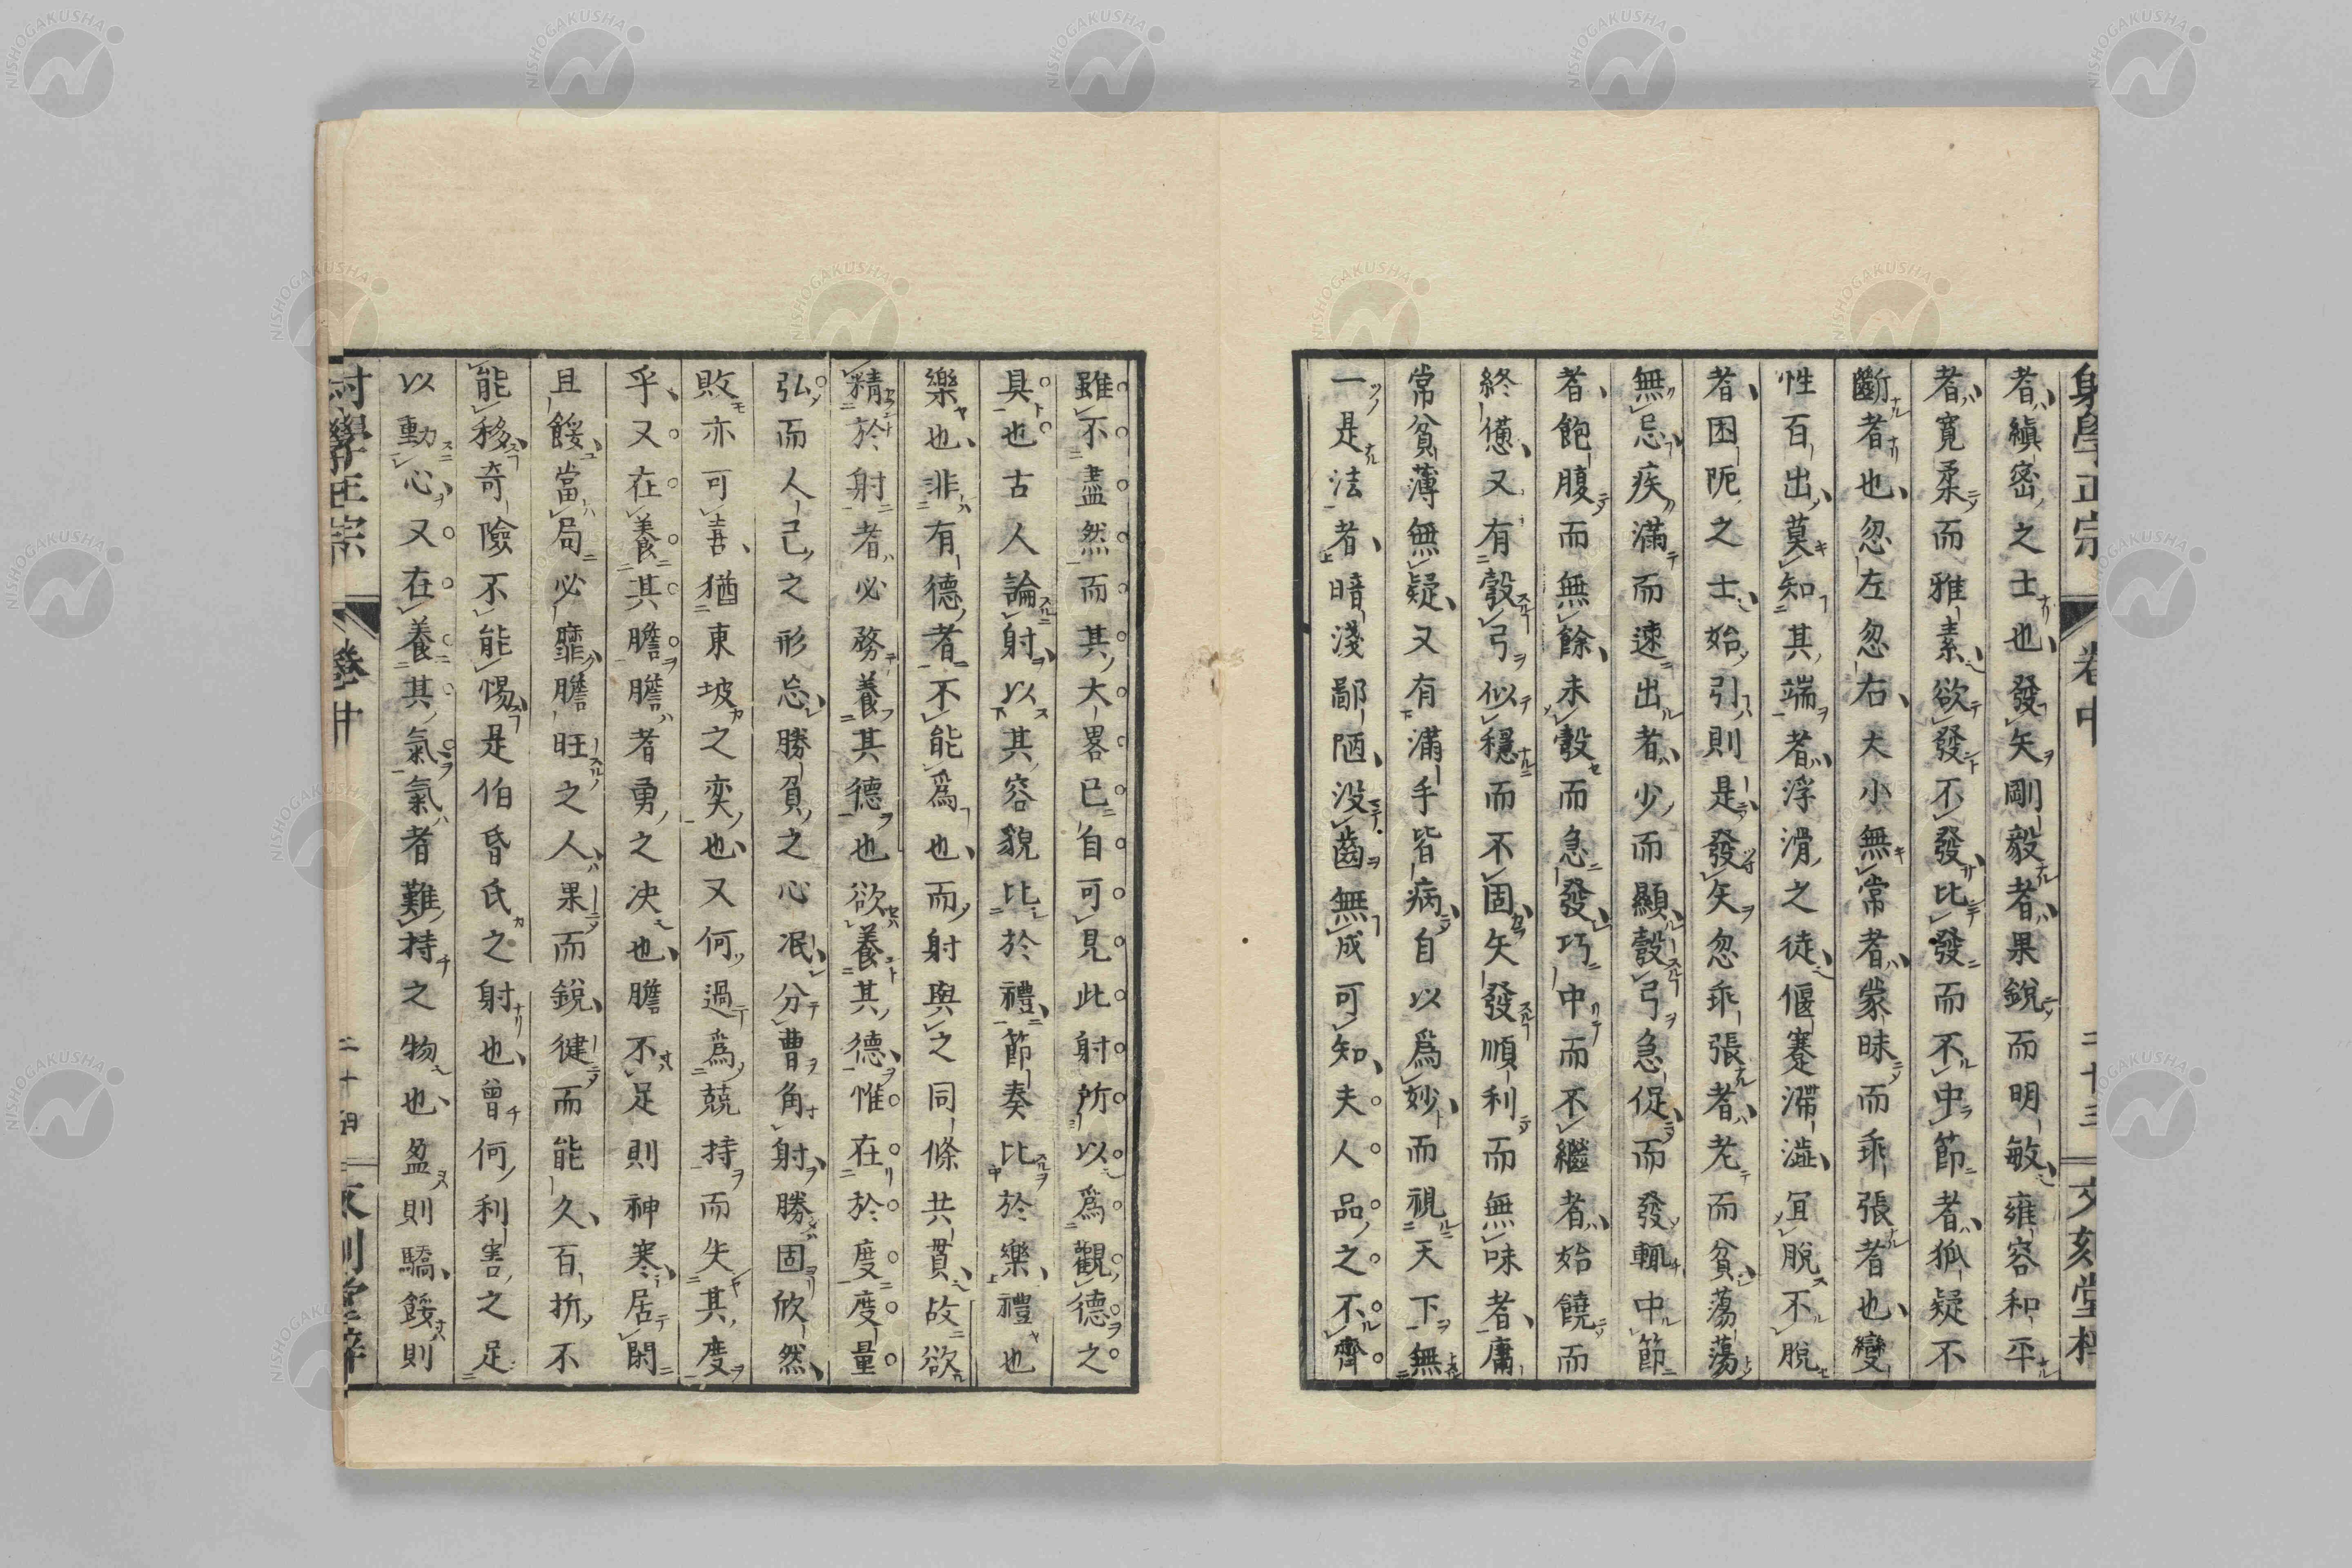 射學正宗 卷中 二十三 文刻堂梓
者縝密之士也發矢剛毅者果銳而明敏雍容和平
者寬柔而雅素欲發不發比發而不中節者狐疑不
斷者也忽左忽右大小無常者蒙昧而乖張者也變
性百出莫知其端者浮滑之徒偃蹇滯澁冝脫不脫
者困阨之士始引則是發矢忽乖張者老而貧蕩蕩
無忌疾滿而速出者少而顯彀弓急促而發輒中節
者飽腹而無餘未彀而急發巧中而不繼者始饒而
終憊又有彀弓似穩而不固矢發順利而無味者庸
常貧薄無疑又有滿手皆病自以爲妙而視天下無
一是法者暗淺鄙陋没齒無成可知夫人品之不齊
雖不盡然而其大畧已自可見此射所以爲觀德之
具也古人論射以其容貌比於禮節奏比於樂禮也
樂也非有德者不能爲也而射與之同條共貫故欲
精於射者必務養其德也欲養其德惟在於度度量
弘而人己之形忘勝負之心泯分曹角射勝固欣然
敗亦可喜猶東坡之奕也又何過爲兢持而失其度
乎又在養其膽膽者勇之决也膽不足則神寒居閑
且餒當局必靡膽旺之人果而銳健而能久百折不
能移奇險不能惕是伯昏氏之射也曾何利害之足
以動心又在養其氣氣者難持之物也盈則驕餒則
射學正宗 卷中 二十四 文刻堂梓
NISHOGAKUSHA